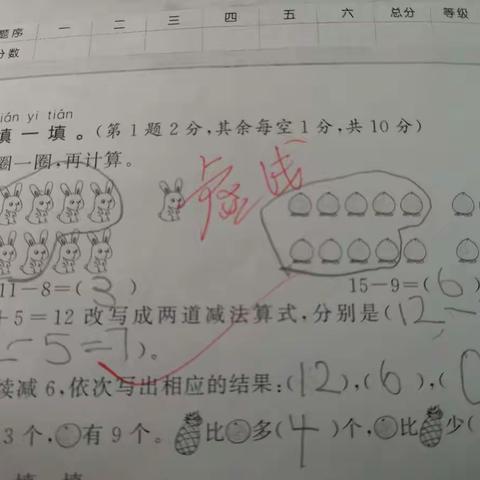 题序 一 二 三 四 五 六 总分 等级
分数
tián yi tián
填一填。(第1题2分,其余每空1分,共10分)
圈一圈,再计算。
11-8=(3) 15-9=(6)
+5=12改写成两道减法算式,分别是(12-
-5=7)。
续减6,依次写出相应的结果:(12),(6),(0
3个,有9个。比多(4)个,比少(